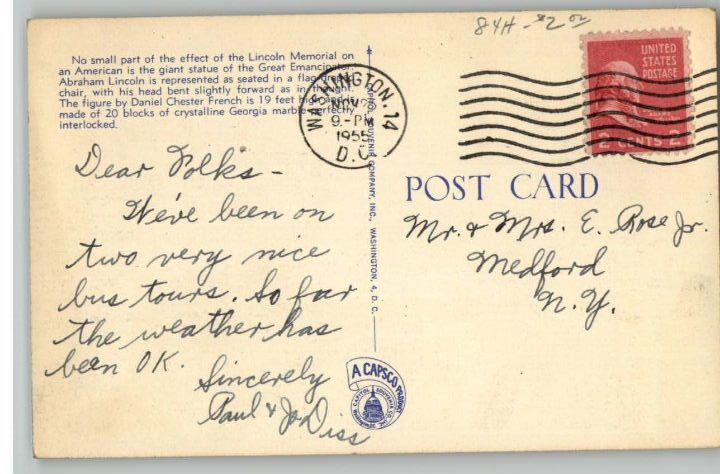 84H - $2.00
No small part of the effect of the Lincoln Memorial on
an American is the giant statue of the Great Emancipator.
Abraham Lincoln is represented as seated in a flag draped
chair, with his head bent slightly forward as in thought.
The figure by Daniel Chester French is 19 feet high and is
made of 20 blocks of crystalline Georgia marble perfectly
interlocked.
WASHINGTON, 14
NOV
9 - PM
1955
D.C.
UNITED
STATES
POSTAGE
2 CENTS 2
CAPITOL SOUVENIR COMPANY, INC., WASHINGTON, 4, D. C.
POST CARD
Dear Folks -
We've been on
two very nice
bus tours. So far
the weather has
been OK.
Sincerely
Paul & Jo Diss
Mr. & Mrs. E. Rose Jr.
Medford
N.Y.
A CAPSCO PRODUCT
CAPITOL SOUVENIR CO. INC.